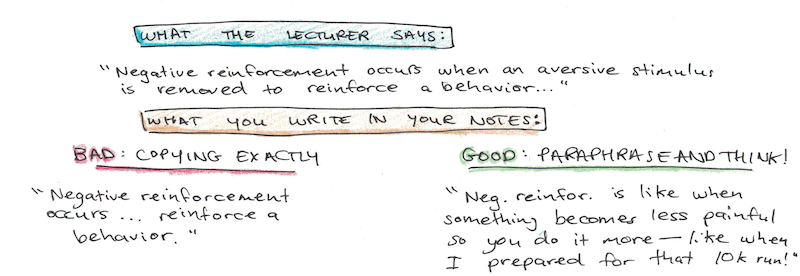 WHAT THE LECTURER SAYS:
"Negative reinforcement occurs when an aversive stimulus
is removed to reinforce a behavior..."
WHAT YOU WRITE IN YOUR NOTES:
BAD: COPYING EXACTLY
"Negative reinforcement
occurs ... reinforce a
behavior."
GOOD: PARAPHRASE AND THINK!
"Neg. reinfor. is like when
something becomes less painful
so you do it more — like when
I prepared for that 10k run!"